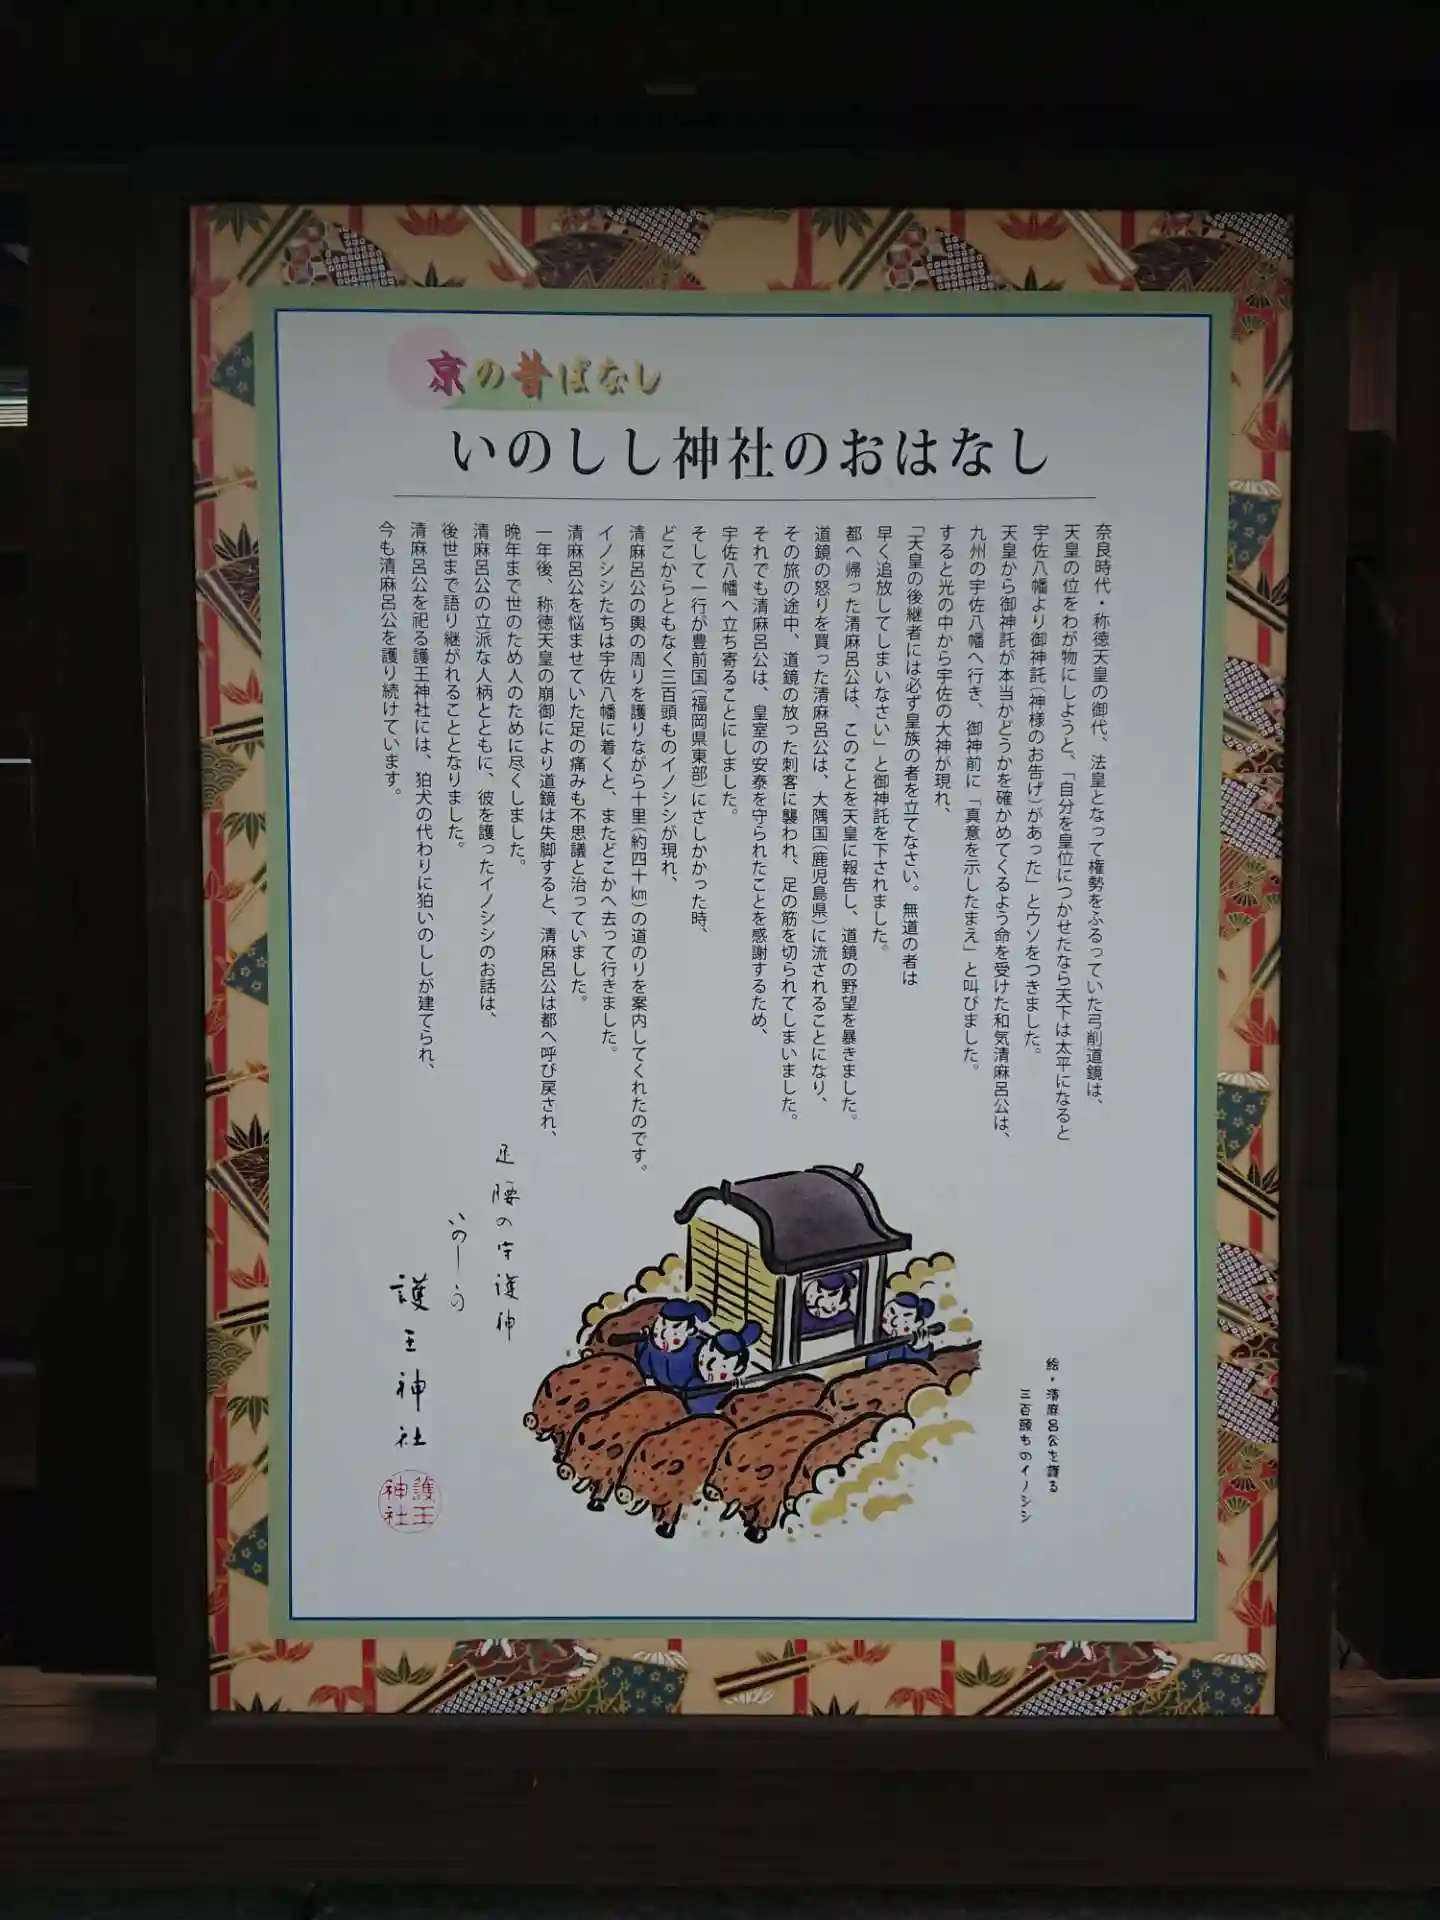 京の昔ばなし
いのしし神社のおはなし
奈良時代・称徳天皇の御代、法皇となって権勢をふるっていた弓削道鏡は、
天皇の位をわが物にしようと、「自分を皇位につかせたなら天下は太平になると
宇佐八幡より御神託(神様のお告げ)があった」とウソをつきました。
天皇から御神託が本当かどうかを確かめてくるよう命を受けた和気清麻呂公は、
九州の宇佐八幡へ行き、御神前に「真意を示したまえ」と叫びました。
すると光の中から宇佐の大神が現れ、
「天皇の後継者には必ず皇族の者を立てなさい。無道の者は
早く追放してしまいなさい」と御神託を下されました。
都へ帰った清麻呂公は、このことを天皇に報告し、道鏡の野望を暴きました。
道鏡の怒りを買った清麻呂公は、大隅国(鹿児島県)に流されることになり、
その旅の途中、道鏡の放った刺客に襲われ、足の筋を切られてしまいました。
それでも清麻呂公は、皇室の安泰を守られたことを感謝するため、
宇佐八幡へ立ち寄ることにしました。
そして一行が豊前国(福岡県東部)にさしかかった時、
どこからともなく三百頭ものイノシシが現れ、
清麻呂公の輿の周りを護りながら十里(約四十㎞)の道のりを案内してくれたのです。
イノシシたちは宇佐八幡に着くと、またどこかへ去って行きました。
清麻呂公を悩ませていた足の痛みも不思議と治っていました。
一年後、称徳天皇の崩御により道鏡は失脚すると、清麻呂公は都へ呼び戻され、
晩年まで世のため人のために尽くしました。
清麻呂公の立派な人柄とともに、彼を護ったイノシシのお話は、
後世まで語り継がれることとなりました。
清麻呂公を祀る護王神社には、狛犬の代わりに狛いのししが建てられ、
今も清麻呂公を護り続けています。
絵・清麻呂公を護る
三百頭ものイノシシ
足腰の守護神
護王神社
護王
神社